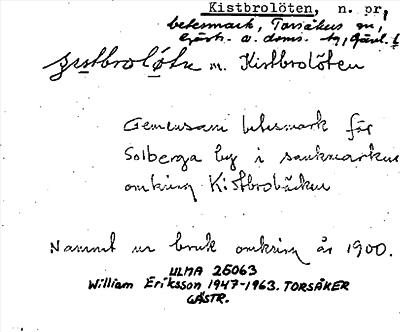 Kistbrolöten, n. pr,
betesmark, Torsåkers sn,
Gästr. ö. doms. tg, Gävl. l
m. Kistbrolöten
Gemensam betesmark för
Solberga by i sankmarken
omkring Kistbrobäcken
Namnet ur bruk omkring år 1900.
ULMA 25063
William Eriksson 1947-1963. TORSÅKER
GÄSTR.